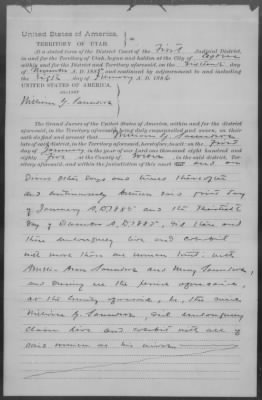 United States of America.
TERRITORY OF UTAH.
At a stated term of the District Court of the First Judicial District,
in and for the Territory of Utah, begun and holden at the City of
within and for the District and Territory aforesaid, on the day
of A. D. 188 and continued by adjournment to and including
the day of January A. D. 188
UNITED STATES OF AMERICA,
AGAINST
William G.
The Grand Jurors of the United States of America, within and for the district
aforesaid, in the Territory aforesaid being duly empaneled and sworn, on their
oaths do find and present that William G.
late of said district, in the Territory aforesaid, heretofore, to-wit: on the First
day of January in the year of our Lord one thousand eight hundred and
eighty five at the County of in the said district, Territory
aforesaid and within the jurisdiction of this court and on
Divers other days and times thereafter
and continuously between said first day
of January A.D. 1885 and the
day of December A.D. 1885, did then and
there unlawfully live and cohabit
with more than one woman to wit: with
Ann and Mary
and during all the period aforesaid,
at the County aforesaid, he, the said
William G. did unlawfully
claim live and cohabit with all of
said women as his wives